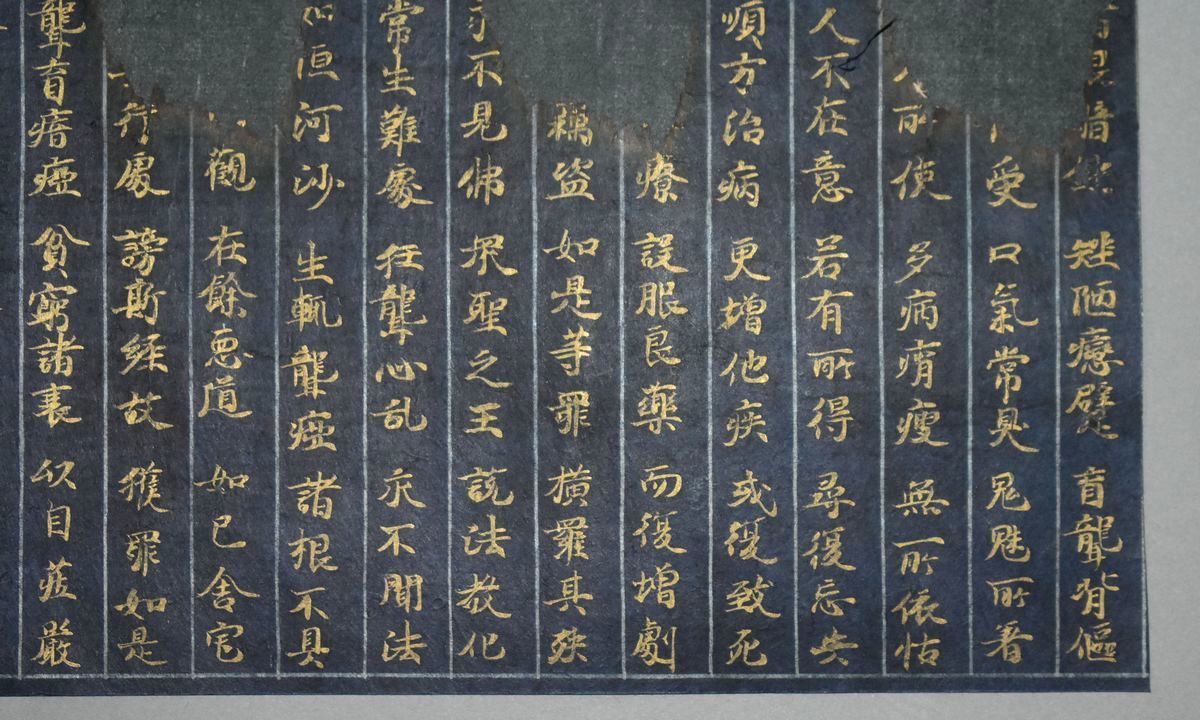 暗鈍 矬陋癵躄 盲聾背傴
受 口氣常臭 鬼魅所著
人所使 多病痟瘦 無所依怙
人不在意 若有所得 尋復忘失
順方治病 更增他疾 或復致死
療 設服良藥 而復增劇
竊盜 如是等罪 橫羅其殃
不見佛 眾聖之王 說法教化
常生難處 狂聾心乱 永不聞法
如恒河沙 生輒聾瘂 諸根不具
觀 在餘惡道 如己舍宅
行處 謗斯經故 獲罪如是
聾盲瘖瘂 貧窮諸衰 以自莊嚴